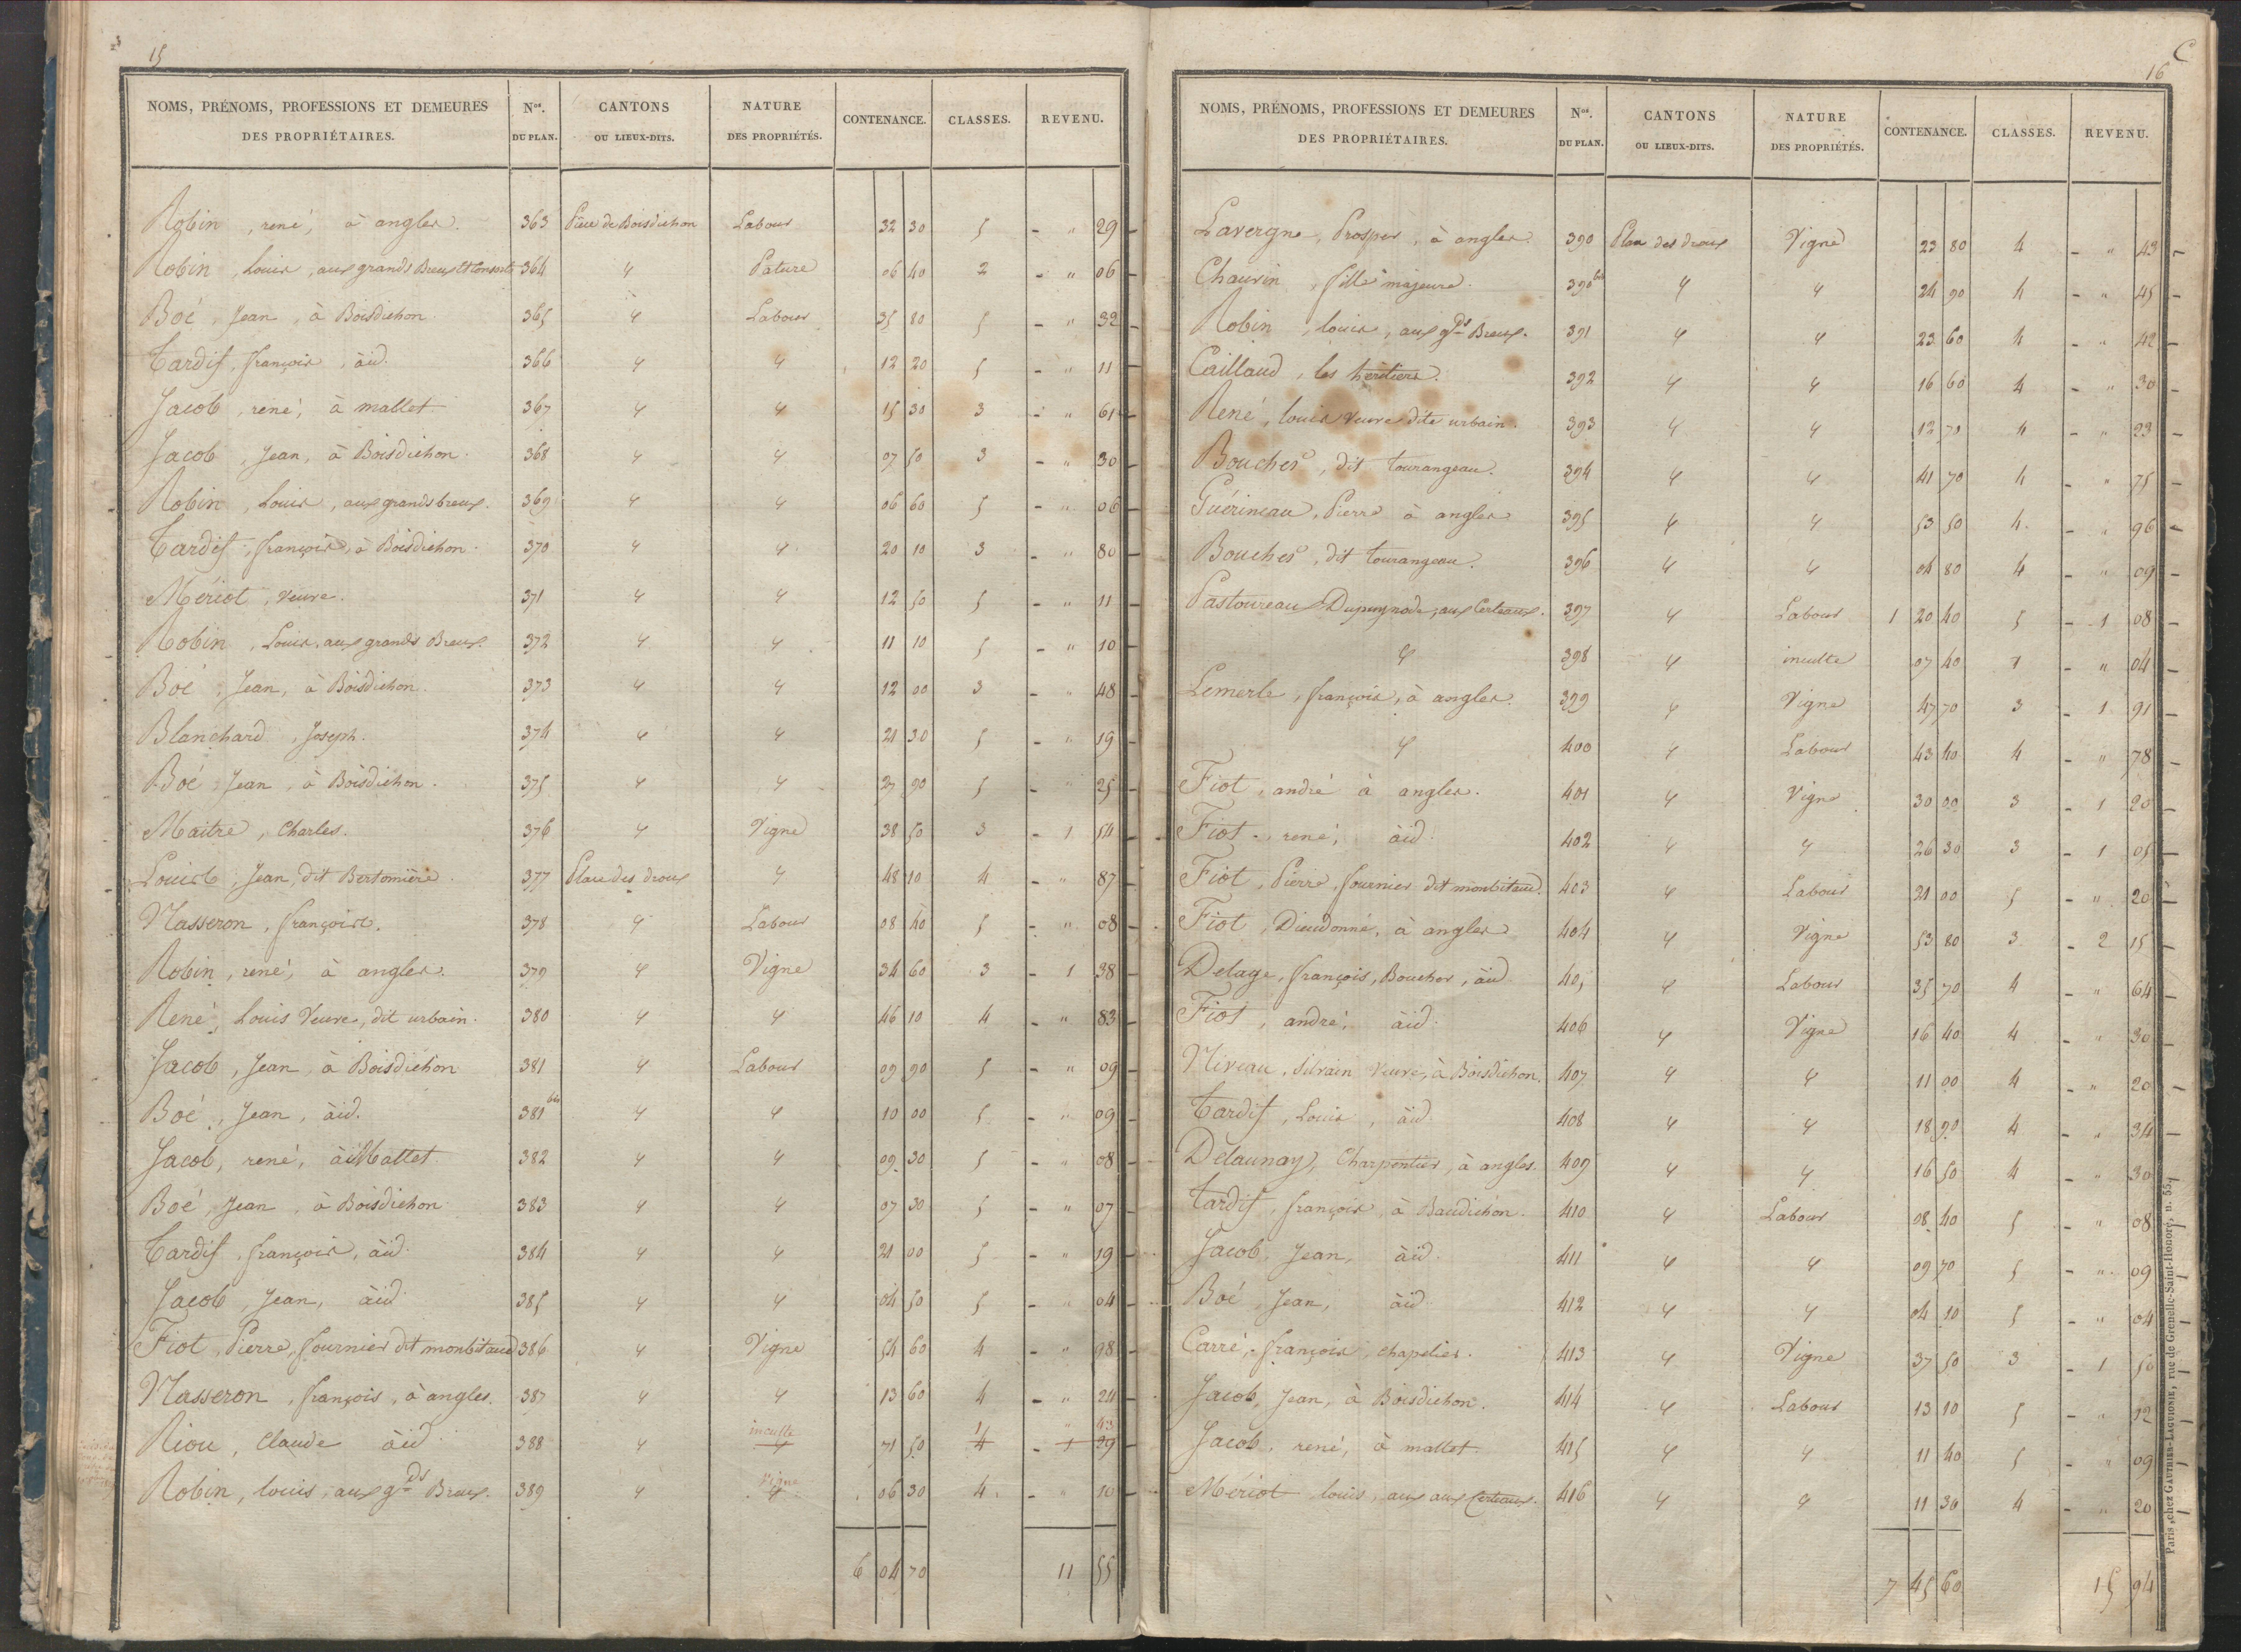 15
NOMS, PRÉNOMS, PROFESSIONS ET DEMEURES DES PROPRIÉTAIRES. Nos. DU PLAN. CANTONS OU LIEUX-DITS. NATURE DES PROPRIÉTÉS. CONTENANCE. CLASSES. REVENU.
Robin, rené, à angles. 363 Pièce de Boisdichon Labour 32 30 5 - " 29 -
Robin, Louis, aux grands Breux et Consorts 364 " Pature 06 40 2 - " 06 -
Boé, Jean, à Boisdichon. 365 " Labour 35 80 5 - " 32 -
Tardif, françois, àid. 366 " " 12 20 5 - " 11 -
Jacob, rené, à mallet 367 " " 15 30 3 - " 61 -
Jacob, Jean, à Boisdichon. 368 " " 07 50 3 - " 30 -
Robin, Louis, aux grands breux. 369 " " 06 60 5 - " 06 -
Tardif, françois, à Boisdichon. 370 " " 20 10 3 - " 80 -
Mériot, veuve. 371 " " 12 50 5 - " 11 -
Robin, Louis, aux grands Breux. 372 " " 11 10 5 - " 10 -
Boé, Jean, à Boisdichon. 373 " " 12 00 3 - " 48 -
Blanchard, Joseph. 374 " " 21 30 5 - " 19 -
Boé, Jean, à Boisdichon. 375 " " 27 90 5 - " 25 -
Maitre, Charles. 376 " Vigne 38 50 3 - 1 54 -
Jean, dit Bertomière. 377 Place des droux " 48 10 4 - " 87 -
Masseron, françoise. 378 " Labour 08 40 5 - " 08 -
Robin, rené, à angles. 379 " Vigne 34 60 3 - 1 38 -
René, Louis Veuve, dit urbain. 380 " " 46 10 4 - " 83 -
Jacob, Jean, à Boisdichon 381 " Labour 09 90 5 - " 09 -
Boé, Jean, àid. 381 bis " " 10 00 5 - " 09 -
Jacob, rené, à Mallet 382 " " 09 30 5 - " 08 -
Boé, Jean, à Boisdichon 383 " " 07 30 5 - " 07 -
Tardif, françois, àid. 384 " " 21 00 5 - " 19 -
Jacob, Jean, àid. 385 " " 04 50 5 - " 04 -
Fiot, Pierre, fournier dit monbitaud 386 " Vigne 54 60 4 - " 98 -
Masseron, françois, à angles. 387 " " 13 60 4 - " 24 -
inculte 1 " 43
Riou, Claude àid. 388 " " 71 50 4 - 1 29 -
vigne
Robin, louis, aux gds Breux. 389 " " 06 30 4 - " 10 -
6 04 70 11 55
C
16
NOMS, PRÉNOMS, PROFESSIONS ET DEMEURES DES PROPRIÉTAIRES. Nos. DU PLAN. CANTONS OU LIEUX-DITS. NATURE DES PROPRIÉTÉS. CONTENANCE. CLASSES. REVENU.
Lavergne, Prosper, à angles. 390 Place des droux Vigne 23 80 4 - " 43 -
Chauvin, fille majeure. 390 bis " " 24 90 4 - " 45 -
Robin, louis, aux gds Breux. 391 " " 23 60 4 - " 42 -
Caillaud, les heritiers. 392 " " 16 60 4 - " 30 -
René, louis veuve dite urbain. 393 " " 12 70 4 - " 23 -
Boucher, dit tourangeau. 394 " " 41 70 4 - " 75 -
Guérineau, Pierre à angles 395 " " 53 50 4 - " 96 -
Boucher, dit tourangeau. 396 " " 04 80 4 - " 09 -
Pastoureau Dupuynode, aux Certeaux. 397 " Labour 1 20 40 5 - 1 08 -
" 398 " inculte 07 40 1 - " 04 -
Lemerle, françois, à angles. 399 " Vigne 47 70 3 - 1 91 -
" 400 " Labour 43 40 4 - " 78 -
Fiot, andré à angles. 401 " Vigne 30 00 3 - 1 20 -
Fiot, rené, àid. 402 " " 26 30 3 - 1 05 -
Fiot, Pierre, fournier dit monbitaud. 403 " Labour 21 00 5 - " 20 -
Fiot, Dieudonné, à angles 404 " Vigne 53 80 3 - 2 15 -
Delage, françois, Boucher, àid. 405 " Labour 35 70 4 - " 64 -
Fiot, andré, àid. 406 " Vigne 16 40 4 - " 30 -
Niveau, Silvain Veuve, à Boisdichon. 407 " " 11 00 4 - " 20 -
Tardif, Louis, àid. 408 " " 18 90 4 - " 34 -
Delaunay, Charpentier, à angles. 409 " " 16 50 4 - " 30 -
Tardif, françois, à Baudichon. 410 " Labour 08 40 5 - " 08 -
Jacob, Jean, àid. 411 " " 09 70 5 - " 09 -
Boé, Jean, àid. 412 " " 04 10 5 - " 04 -
Carré, françois, chapelier. 413 " Vigne 37 50 3 - 1 50 -
Jacob, Jean, à Boisdichon. 414 " Labour 13 10 5 - " 12 -
Jacob, rené, à mallet. 415 " " 11 40 5 - " 09 -
Mériot louis, aux aux Certeaux. 416 " " 11 30 4 - " 20 -
7 45 60 15 94
Paris, chez GAUTHIER-LAGUIONIE, rue de Grenelle-Saint-Honoré, n. 55.